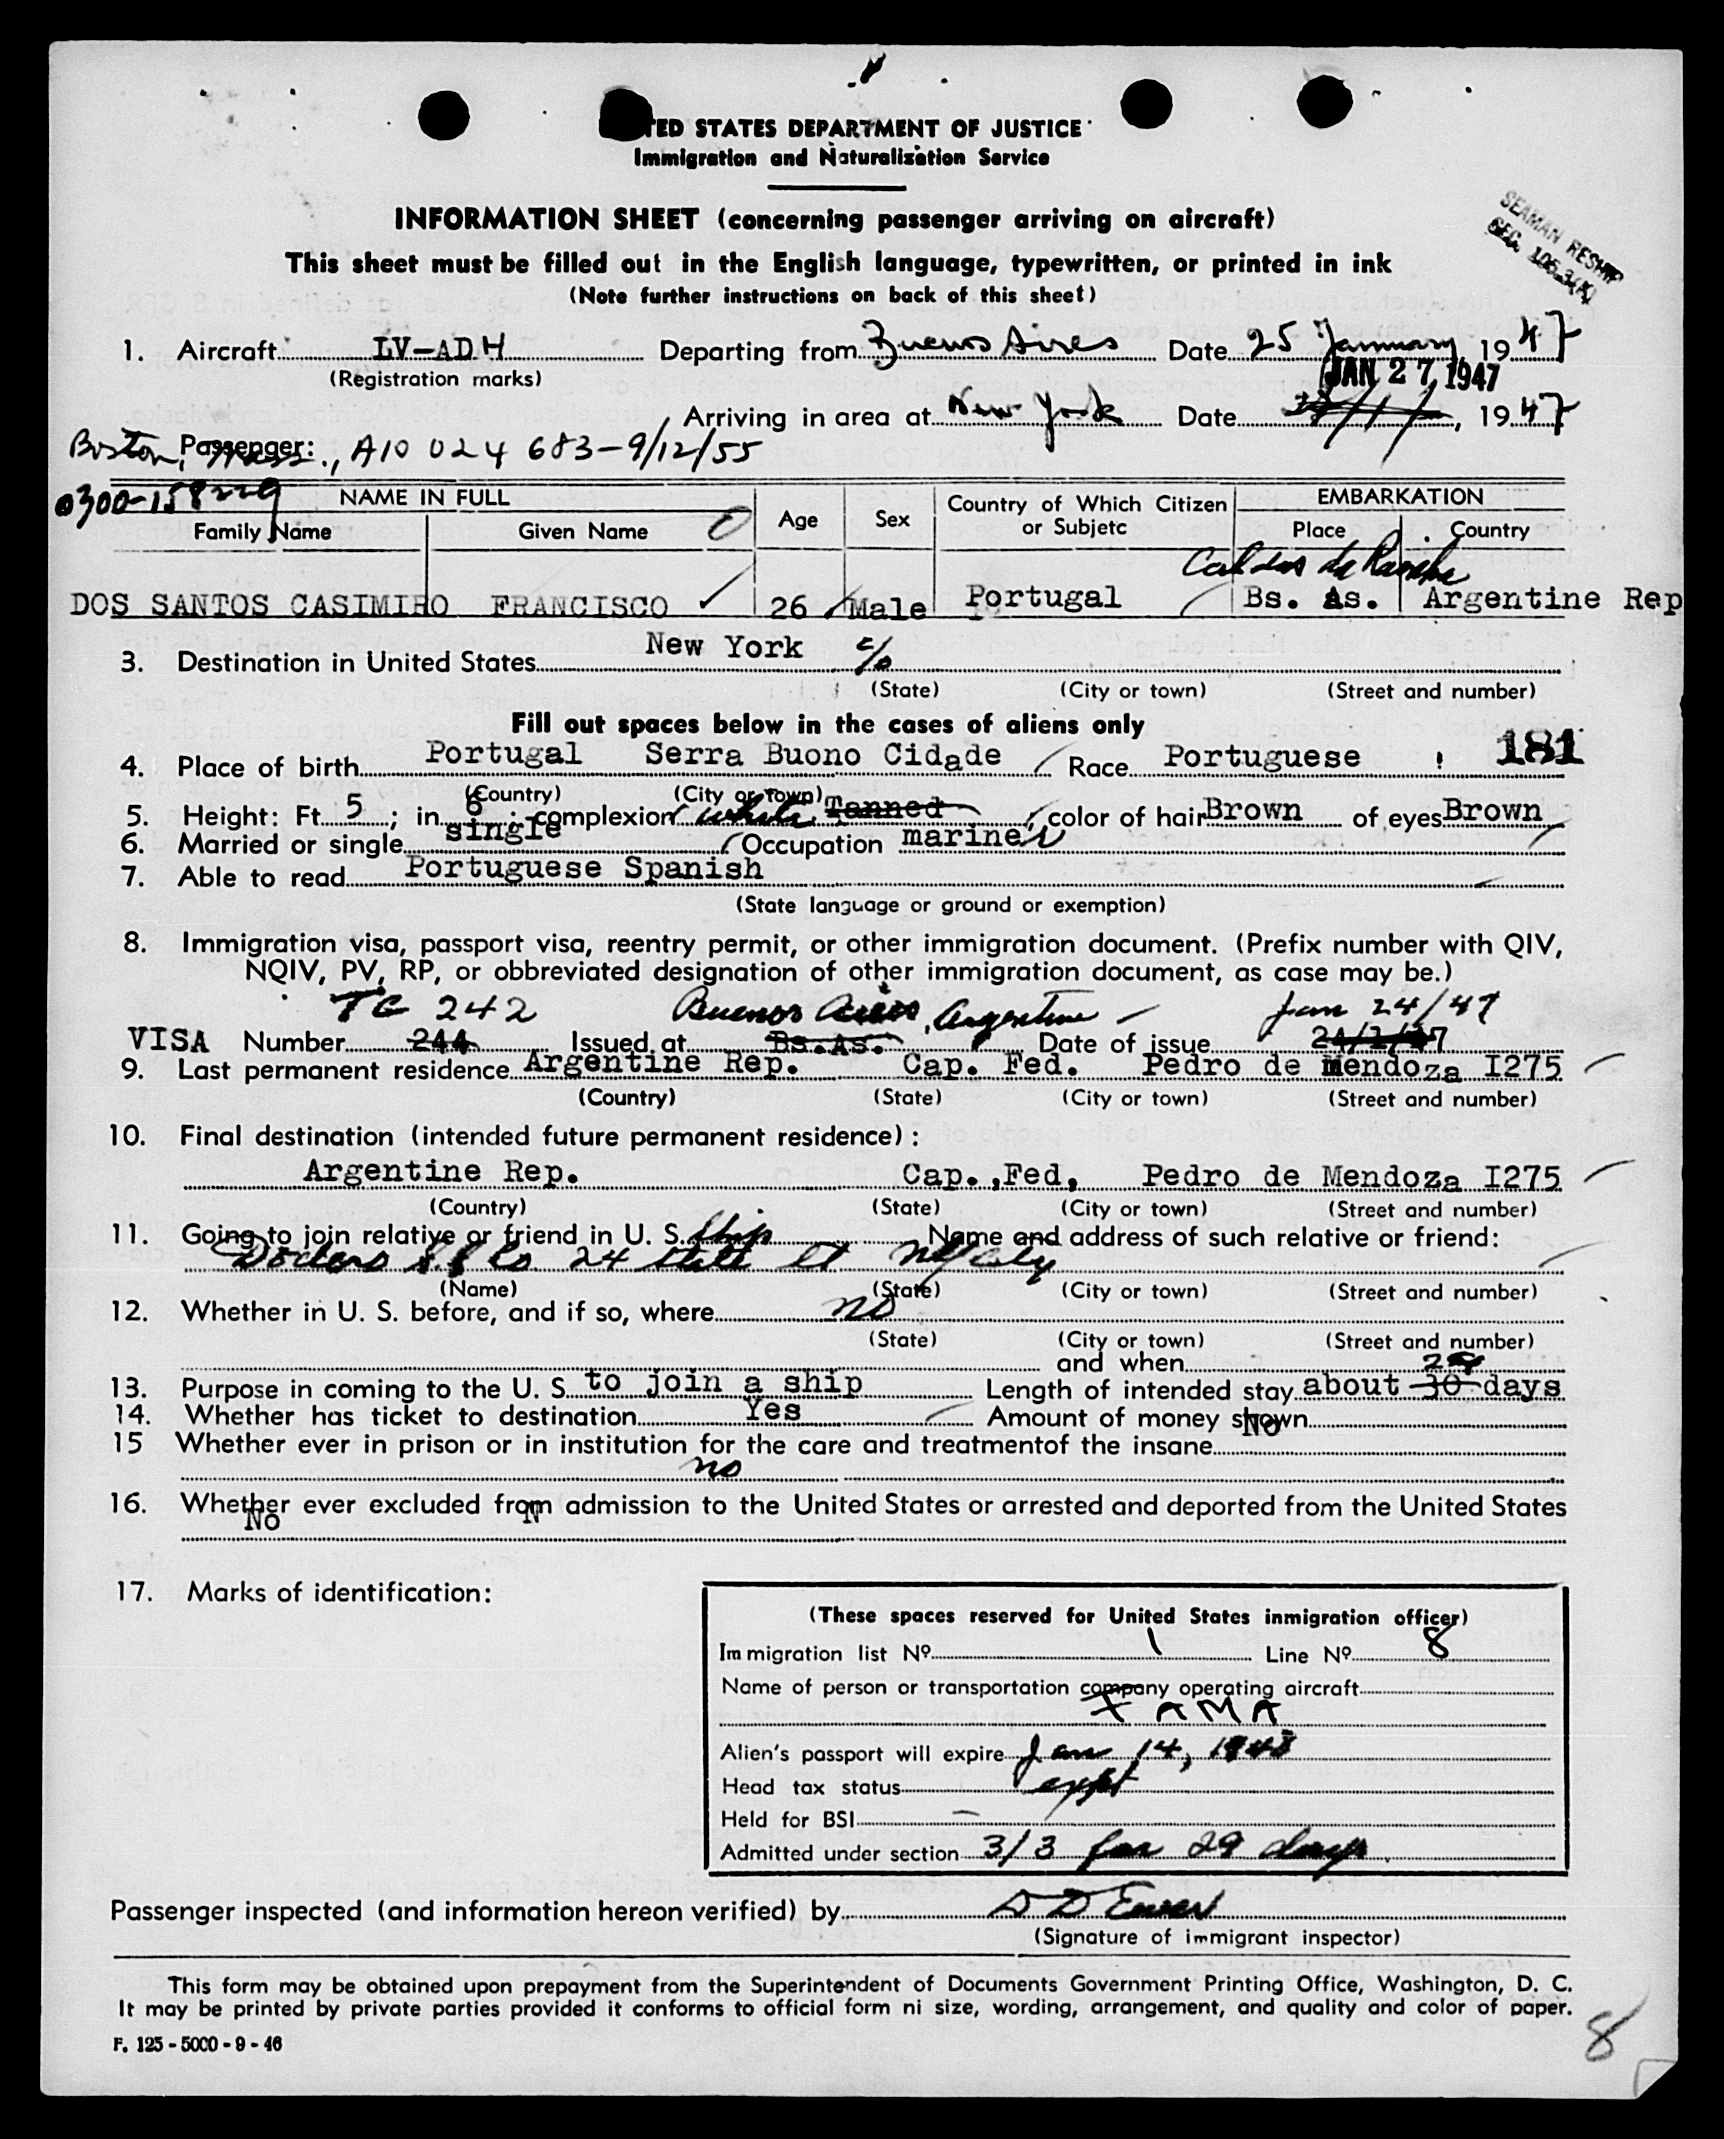 TED STATES DEPARTMENT OF JUSTICE
Immigration and Naturalization Service
INFORMATION SHEET (concerning passenger arriving on aircraft)
SEAMAN RESHIP
SEC. 105.3(K)
This sheet must be filled out in the English language, typewritten, or printed in ink
(Note further instructions on back of this sheet)
1. Aircraft LV-ADH Departing from Buenos Aires Date 25 January, 1947
(Registration marks)
JAN 27, 1947
Arriving in area at New York Date , 1947
Passenger:
Boston, Mass., A10 024 683-9/12/55
0300-158229
NAME IN FULL Age Sex Country of Which Citizen or Subjetc EMBARKATION
Family Name Given Name Place Country
Caldas da
DOS SANTOS CASIMIRO FRANCISCO 26 Male Portugal Bs. As. Argentine Rep
3. Destination in United States New York c/o
(State) (City or town) (Street and number)
Fill out spaces below in the cases of aliens only
181
4. Place of birth Portugal Serra Buono Cidade Race Portuguese
(Country) (City or Town)
5. Height: Ft. 5 ; in. 6 ; complexion white Tanned color of hair Brown of eyes Brown
6. Married or single single Occupation mariner
7. Able to read Portuguese Spanish
(State language or ground or exemption)
8. Immigration visa, passport visa, reentry permit, or other immigration document. (Prefix number with QIV,
NQIV, PV, RP, or obbreviated designation of other immigration document, as case may be.)
TC 242 Buenos Aires, Argentine Jan 24/47
VISA Number 244 Issued at Bs.As. Date of issue 24/1/47
9. Last permanent residence Argentine Rep. Cap. Fed. Pedro de Mendoza I275
(Country) (State) (City or town) (Street and number)
10. Final destination (intended future permanent residence) :
Argentine Rep. Cap. ,Fed, Pedro de Mendoza I275
(Country) (State) (City or town) (Street and number)
11. Going to join relative or friend in U. S. Ship Name and address of such relative or friend:
Dodero S.S Co 24 State St NY City
(Name) (State) (City or town) (Street and number)
12. Whether in U. S. before, and if so, where no
(State) (City or town) (Street and number)
and when
13. Purpose in coming to the U. S. to join a ship Length of intended stay about 30 29 days
14. Whether has ticket to destination Yes Amount of money shown No
15 Whether ever in prison or in institution for the care and treatmentof the insane
no
16. Whether ever excluded from admission to the United States or arrested and deported from the United States
No N
17. Marks of identification:
(These spaces reserved for United States inmigration officer)
Immigration list Nº 1 Line Nº 8
Name of person or transportation company operating aircraft
FAMA
Alien's passport will expire Jan 14, 1948
Head tax status expt
Held for BSI —
Admitted under section 3/3 for 29 days
Passenger inspected (and information hereon verified) by
(Signature of immigrant inspector)
This form may be obtained upon prepayment from the Superintendent of Documents Government Printing Office, Washington, D. C.
It may be printed by private parties provided it conforms to official form ni size, wording, arrangement, and quality and color of paper.
F. 125 - 5000 - 9 - 46
8